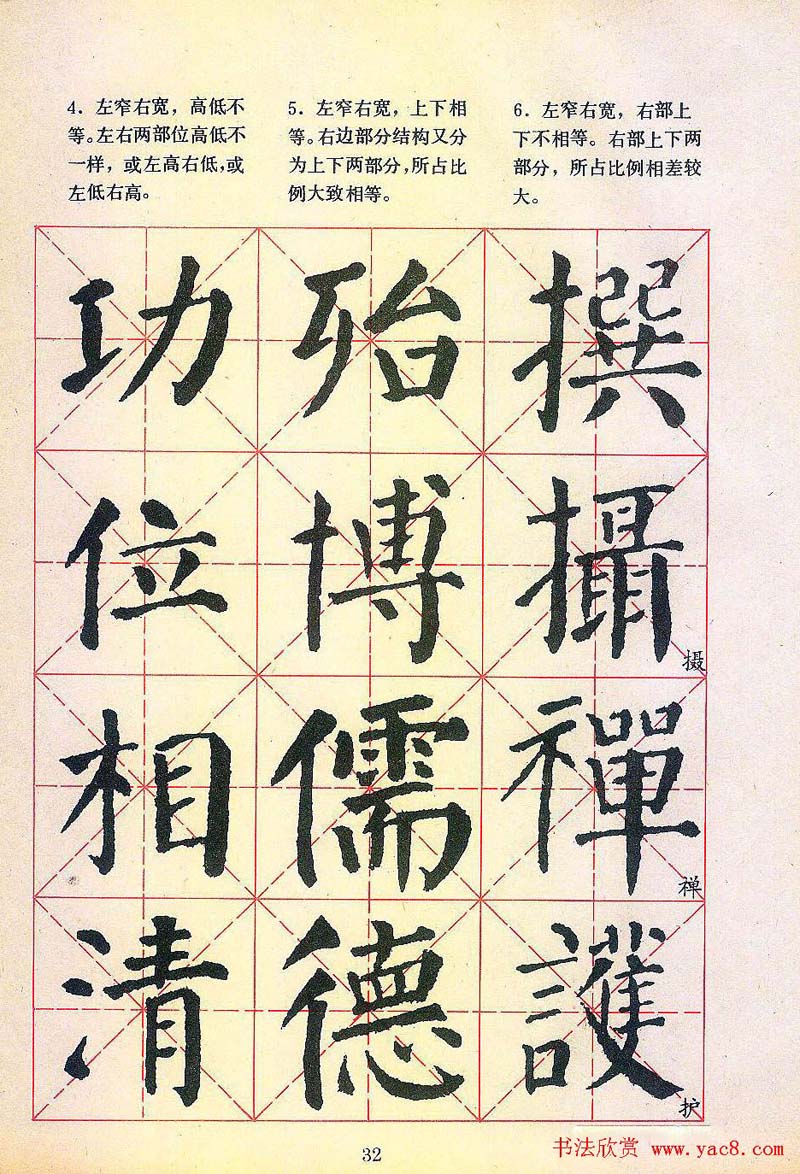 4．左窄右宽，高低不
等。左右两部位高低不
一样，或左高右低，或
左低右高。
5．左窄右宽，上下相
等。右边部分结构又分
为上下两部分，所占比
例大致相等。
6．左窄右宽，右部上
下不相等。右部上下两
部分，所占比例相差较
大。
功 殆 撰
位 博 攝
摄
相 儒 禪
禅
清 德 護
护
32
书法欣赏 www.yac8.com